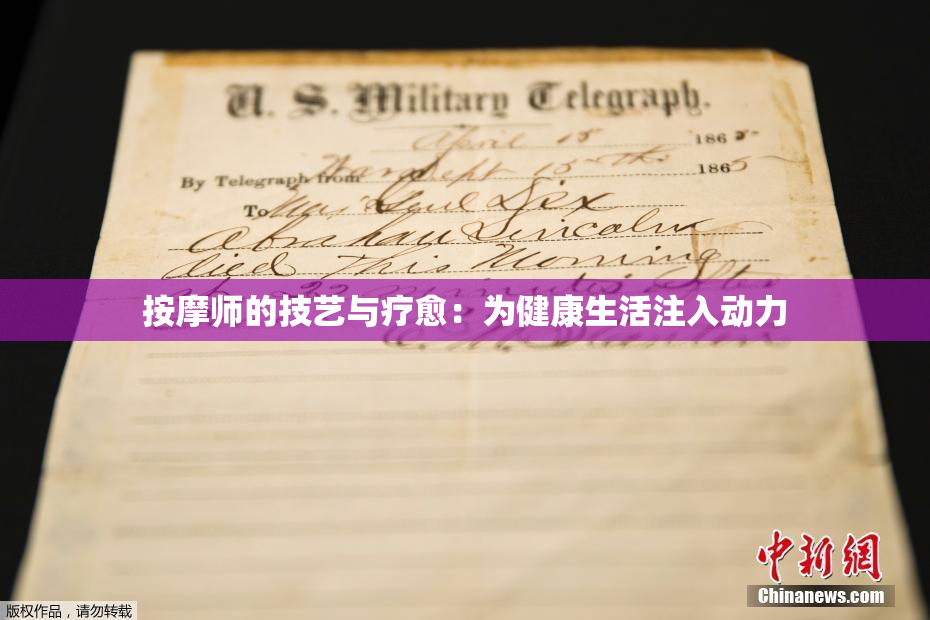 U. S. Military Telegraph.
April 15 1865
By Telegraph from War Dept 15th 1865
To Maj Genl Dix
Abraham Lincoln
died This Morning
at 22 minutes after
按摩师的技艺与疗愈：为健康生活注入动力
中新网
Chinanews.com
版权作品，请勿转载